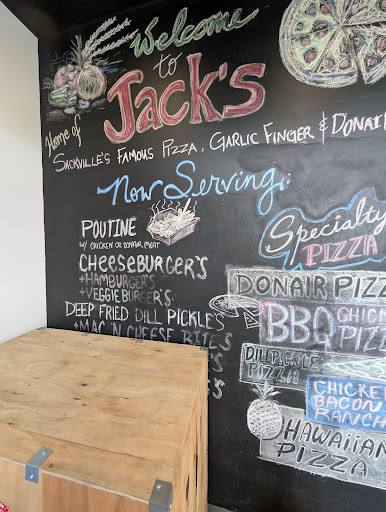 Welcome
to
Jack's
Home of
Sackville's Famous Pizza, Garlic Finger & Donair
Now Serving:
Poutine
w/ chicken or donair meat
Cheeseburger's
+Hamburger's
+Veggie Burger's
Deep Fried Dill Pickle's
+Mac N Cheese Bites
Specialty
Pizza
Donair Pizz
BBQ Chic
Pizz
Dill Pickle
Pizza
Chicke
Bacon
Ranch
Hawaiian
Pizza